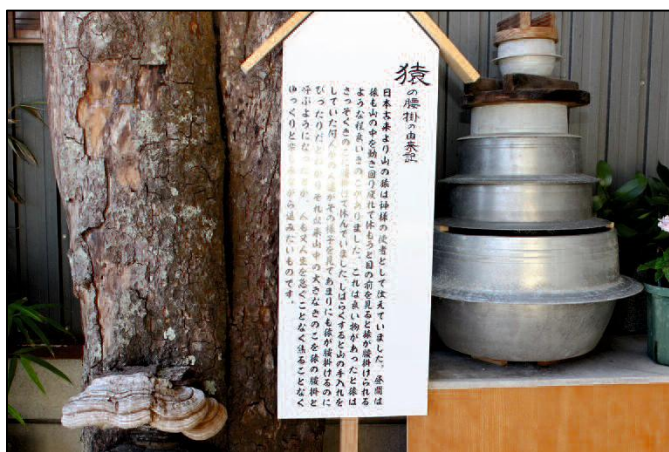 猿の腰掛の由来記
日本古来より山の猿は神様の使者として仕えていました。昼間は
猿も山の中を動き回り疲れて休もうと目の前を見ると猿が腰掛けられる
ような程良いきのこがありました。これは良い物があったと猿は
さっそくきのこに腰掛けて休んでいました。しばらくすると山の手入れを
していた何人かの人達がその様子を見てあまりにも猿が腰掛けるのに
ぴったりだと かりそれ以来山中の大きなきのこを猿の腰掛と
呼ぶようにな 人も又人生を急ぐことなく焦ることなく
ゆっくりと から進みたいものです。